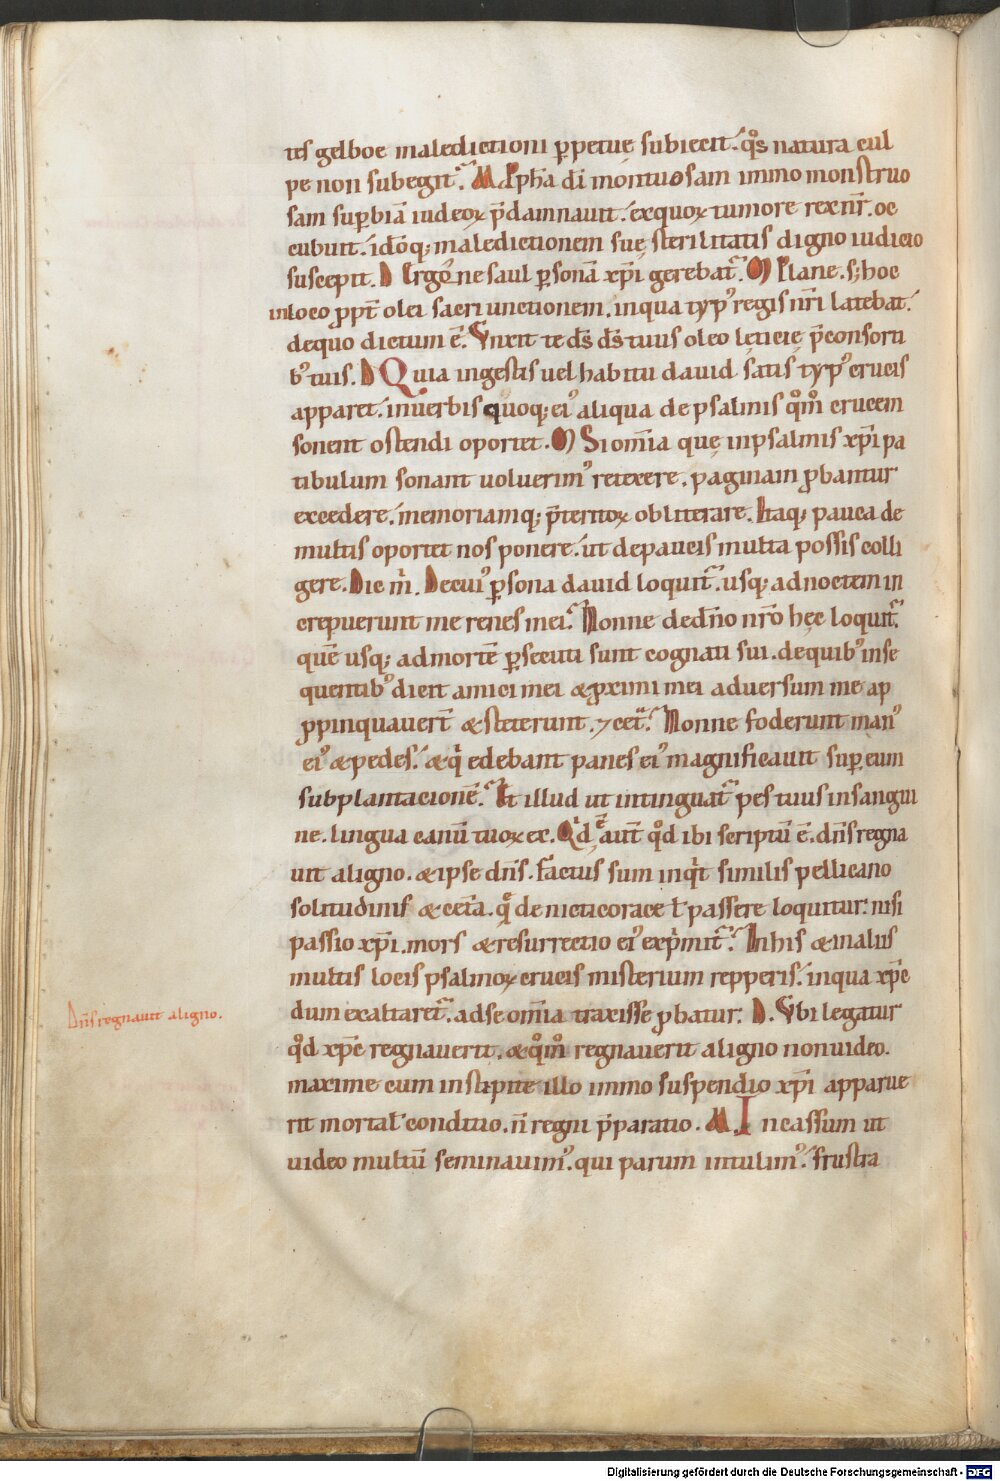 tes gelboe maledictioni ꝑpetuę subiecit. q̊s natura cul
pe non subegit. M Ꝓph̄a di montuosam immo monstruo
sam supbiā iudeoꝝ p̄damnauit. exquoꝝ tumore rex nr̄. oc
cubuit. idōq; maledictionem suę sterilitatis digno iudicio
suscepit. D Ergo ne saul ꝑsonā xp̄i gerebat. M Plane. s; hoc
inloco ꝓpt̄ olei sacri unctionem. inqua typ᾽ regis nr̄i latebat.
dequo dictum ē. Vnxit te ds̄ ds̄ tuus oleo lęticię p̄consorti
b᾽ tuis. D Quia ingestis uel habitu dauid satis typ᾽ crucis
apparet. inuerbis quoq; ei᾽ aliqua de psalmis q̊m̊ crucem
sonent ostendi oportet. M Si om̄ia quę inpsalmis xp̄i pa
tibulum sonant uoluerim᾽ retexere. paginam ꝓbantur
excedere. memoriamq; p̄teritoꝝ obliterare. Itaq; pauca de
multis oportet nos ponere. ut depaucis multa possis colli
gere. Dic m̄. Decui᾽ ꝑsona dauid loquit᾽. usq; adnoctem in
crepuerunt me renes mei. Nonne dedn̄o nr̄o hęc loquit᾽.
quē usq; admortē ꝑsecuti sunt cognati sui. dequib᾽ inse
quentib᾽ dicit amici mei & ꝓximi mei aduersum me ap
ꝓpinquauer̄t & steterunt. ⁊ cet᾽. Nonne foderunt man᾽
ei᾽ & pedes. & qͥ edebant panes ei᾽ magnificauit sup eum
subplantacionē. Et illud ut intinguat᾽ pes tuus insangui
ne. lingua canū tuoꝝ ex. Qͥd ē aut̄ qd̊ ibi scriptū ē. dn̄s regna
uit aligno. & ipse dn̄s. factus sum inqͥt similis pellicano
solitudinis & cet̄a. q̊ de nicticorace ł passere loquitur. nisi
passio xp̄i. mors & resurrectio ei᾽ expͥmit᾽. Inhis & inaliis
multis locis psalmoꝝ crucis misterium repperis. inqua xp̄c
dum exaltaret᾽. adse om̄ia traxisse ꝓbatur. D. Vbi legatur
qd̊ xp̄c regnauerit. & q̊m̊ regnauerit aligno nonuideo.
maxime cum instipite illo immo suspendio xp̄i apparue
rit mortal᾽ conditio. n̄ regni p̄paratio. M. Incassum ut
uideo multū seminauim᾽. qui parum intulim᾽. frustra
Dn̄s regnauit aligno.
Digitalisierung gefördert durch die Deutsche Forschungsgemeinschaft - DFG